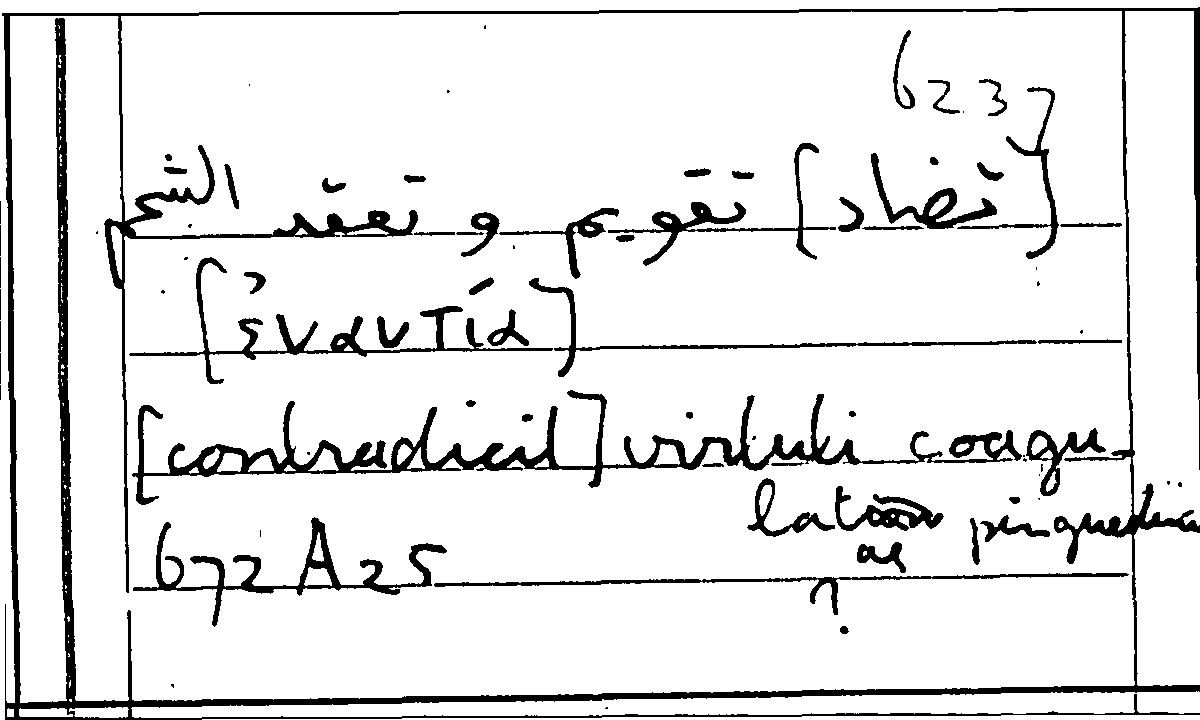 6237
[تضاد] تقويم و تعقد الشحم
[ἐναντία]
[contradicit] virtuti coagu-
pinguedina
ae
672 A 25
?